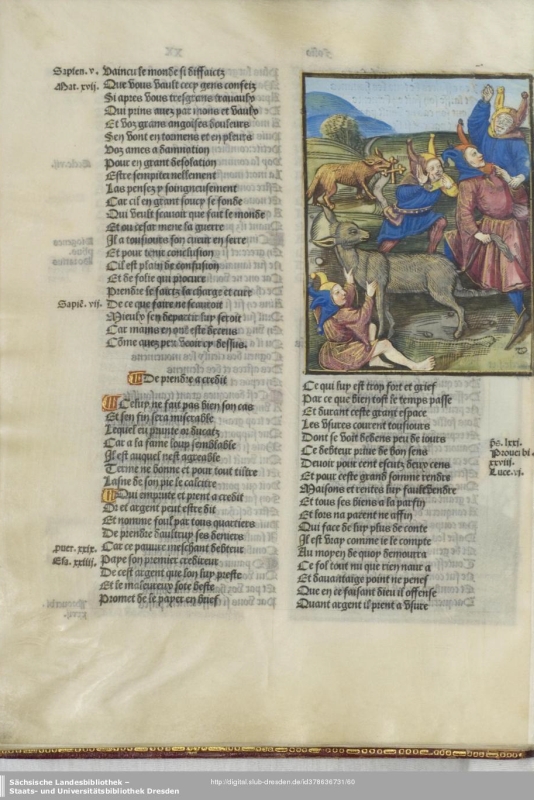 Sapien. v.
Mat. xvii.
Vaincu le monde si diffaictz
Que vous vault cecy gens confeiz
Si apres vous tresgrans travaulx
Qui prins avez par mons et vaulx
Et voz grans angoisses douleurs
Sen vont en tormens et en pleurs
Voz ames a dampnation
Pour en grant desolation
Estre sempiternellement
Las pensez y soingneusement
Car cil en grant soucy se fonde
Qui veult scavoir que fait le monde
Et ou cesar mene la guerre
Il a tousiours son cueur en serre
Et pour tenir conclusion
Cil est plain de confusion
Et de folie qui procure
Prendre se faictz la charge et cure
Sapie. vii.
De ce que faire ne scauroit
Mieulx sen departir luy seroit
Car mains en ont este deceus
Come avez peu veoir cy dessus.
De prendre a credit
Celuy ne fait pas bien son cas
Et son fin sera miserable
Lequel emprunte or ducatz
Car a la fame loup semblable
Il est auquel nest agreable
Terme ne bonne et pour tout tiltre
Lasne de son pie le calcitre
Qui emprute et prent a credit
Or et argent peut estre dit
Et nomme foul par tous quartiers
De prendre daultruy ses deniers
puer. xxix.
Car ce pauvre meschant debteur
Esa. xxiiii.
Paye son premier crediteur
De cest argent que son luy preste
Et le maleureux sote beste
Promet de le payer en brief
Ce qui luy est trop fort et grief
Par ce que bien tost le temps passe
Et durant ceste grant espace
Les usures courent tousiours
Dont se voit dedens peu de iours
Ce debteur prive de bon sens
Devoir pour cent escutz deux cens
Et pour ceste grand somme rendre
Maisons et rentes luy fault vendre
Et tous ses biens a la parfin
Et lors na parent ne affin
Qui face de luy plus de conte
Il est vray comme ie le compte
Au moyen de quoy demoura
Ce fol tout nu que rien naura
Et davantaige point ne pense
Que en ce faisant dieu il offense
Quant argent il prent a usure
ps. lxxi.
Prouer bi.
xxviii.
Luce. vi.
Sächsische Landesbibliothek –
Staats- und Universitätsbibliothek Dresden
http://digital.slub-dresden.de/id378636731/60